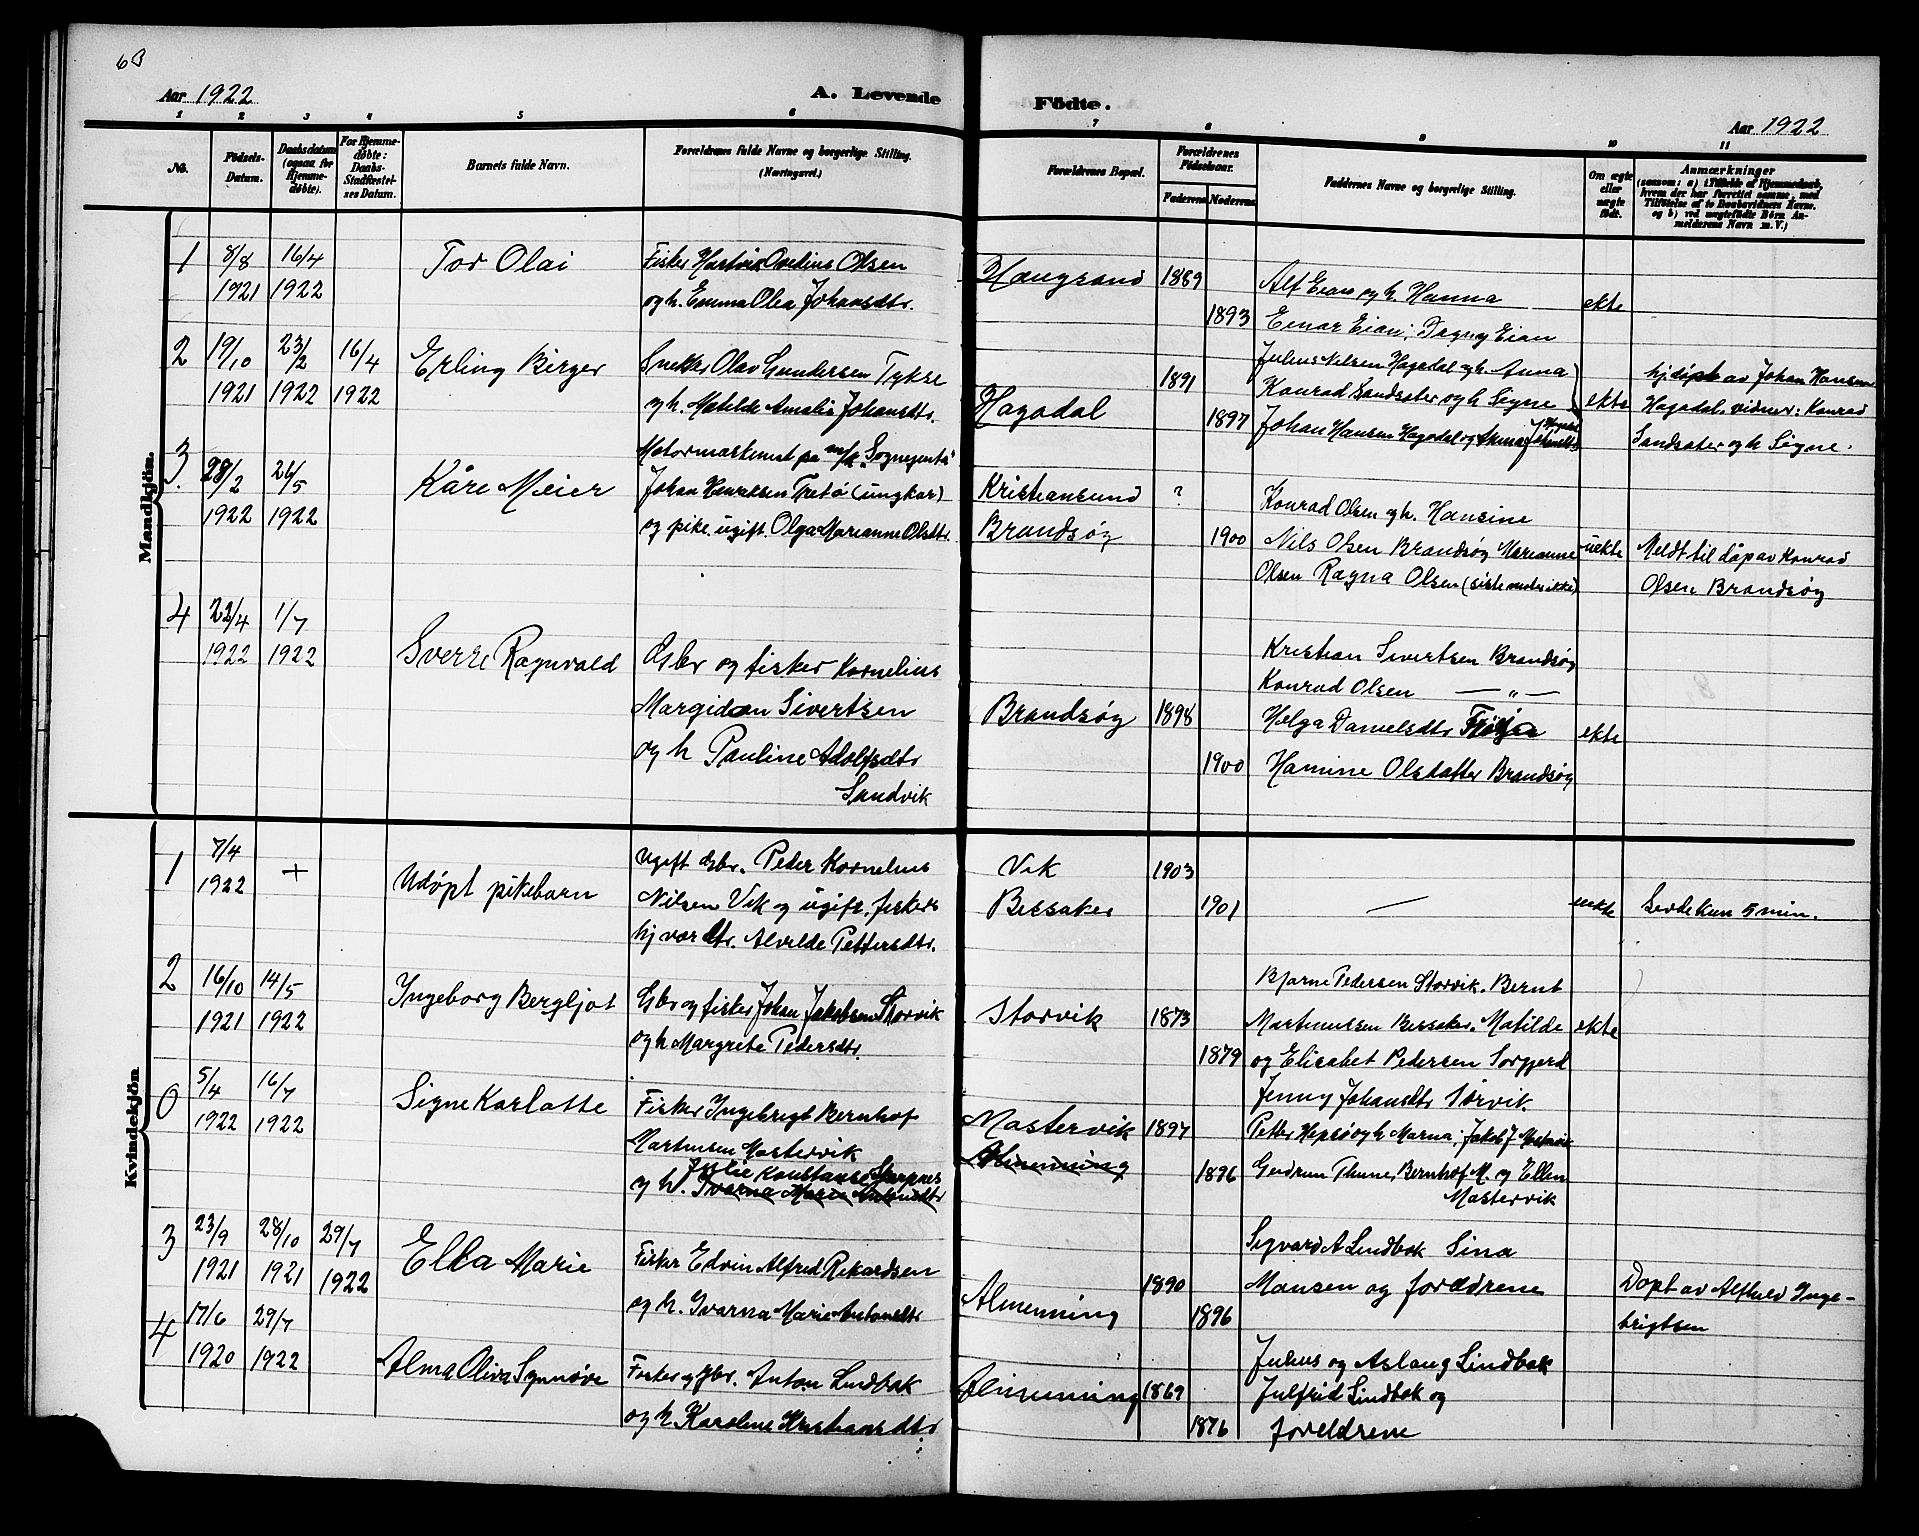 60
Aar 1922
A. Levende Födte.
Aar 1922
1 2 3 4 5 6 7 8 9 10 11
No.
Födsels-Datum.
Daabsdatum (ogsaa for Hjemmedøbte).
For Hjemmedøbte: Daabs-Stadfæstelses Datum.
Barnets fulde Navn.
Forældrenes fulde Navne og borgerlige Stilling. (Næringsvei.)
Forældrenes Bopæl.
Forældrenes Födselsaar.
Faderens Moderens
Faddernes Navne og borgerlige Stilling.
Om ægte eller uægte født.
Anmærkninger
(saasom: a) i Tilfælde af Hjemmedaab, hvem der har forrettet samme, med Tilföielse af to Daabsvidners Navne, og b) ved uægtefödte Börn Anmelderens Navn m.V.)
Mandkjön.
1 8/8 1921 16/4 1922 Tor Olai
Fisker Hartvik Ovedius Olsen
og h. Emma Olea Johansdtr.
Haugsand 1889 1893
Alf Eian og h. Hanna
Einar Eian; Dagny Eian
ekte
2 19/10 1921 23/2 1922 16/4 1922 Erling Birger
Snekker Olav Gundersen Tykse
og h. Matilde Amalie Johansdtr.
Hagodal 1891 1897
Julius Nilsen Hagodal og h. Anna
Konrad Sandsater og h Signe
Johan Hansen Hagodal og Anna
ekte
hj.døpt av Johan Hansen
Hagodal. vidner: Konrad
Sandsater og h Signe.
3. 28/2 1922 26/5 1922 Kåre Meier
Motormaskenist på m/k "Sognejenta"
Johan Henriksen Tretø (ungkar)
og pike. ugift. Olga Marianne Olsdtr.
Kristiansund
Brandsøy
? 1900
Konrad Olsen og h. Hansine
Nils Olsen Brandsøy Marianne
Olsen Ragna Olsen
uekte
Meldt til dåp av Konrad
Olsen Brandsøy
4 22/4 1922 1/7 1922 Sverre Ragnvald
Gsbr og fisker Kornelius
Margidon Sivertsen
og h Pauline Adolfsdtr
Sandvik
Brandsøy 1898 1900
Kristian Sivertsen Brandsøy
Konrad Olsen — „ —
Helga Danielsdtr
Hansine Olsdatter Brandsøy
ekte
Kvindekjön
1 7/4 1922 + Udøpt pikebarn
Ugift gsbr. Peder Kornelius
Nilsen Vik og ugift. fiskers
hj. vær dtr. Alvilde Pettersdtr.
Vik
Bessaker
1903 1901
—
uekte
Levde kun 5 min.
2 16/10 1921 14/5 1922 Ingeborg Bergljot
Gsbr og fisker Johan Jakobsen Storvik
og h Margrete Pedersdtr.
Storvik 1873 1879
Bjarne Pedersen Storvik. Bernt
Martinussen Bessaker. Matilde
og Elisabet Pedersen Sorgjerd
Jenny Johansdtr Størvik.
ekte
0 5/4 1922 16/7 1922 Signe Karlotte
Fisker Ingebrigt Bernhof
Martinsen Mastervik
Julie Konstanse Skarpnes
og h. Ivarna Marie Antonsdtr
Mastervik
Almenning
1897 1896
Petter Hepsø og h Marna; Jakob J Mastervik
Gudrun Thune, Bernhof M. og Ellen
Mastervik
3 23/9 1921 28/10 1921 29/7 1922 Ella Marie
Fisker Edvin Alfred Rikardsen
og h. Ivarna Marie Antonsdtr
Almenning 1890 1896
Sigvard A Lindbak Sina
Hansen og forældrene
Døpt av Alfhild Inge-
brigtsen
4 17/6 1920 29/7 1922 Alma Oliva Synnøve
Fisker og gbr. Anton Lindbak
og h. Karoline Kristiansdtr
Almenning 1869 1876
Julius og Aslaug Lindbak
Julfrid Lindbak og
foreldrene